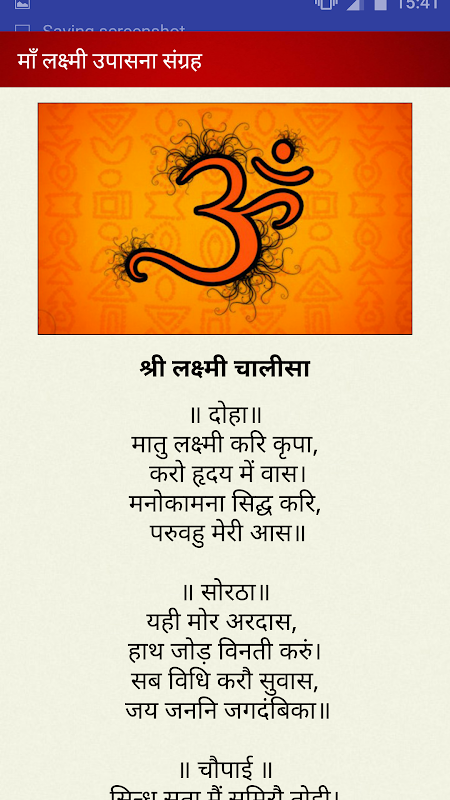 15:41
Saving screenshot
माँ लक्ष्मी उपासना संग्रह
श्री लक्ष्मी चालीसा
॥ दोहा॥
मातु लक्ष्मी करि कृपा,
करो हृदय में वास।
मनोकामना सिद्घ करि,
परुवहु मेरी आस॥
॥ सोरठा॥
यही मोर अरदास,
हाथ जोड़ विनती करुं।
सब विधि करौ सुवास,
जय जननि जगदंबिका॥
॥ चौपाई ॥
सिन्धु सुता मैं सुमिरौ तोही।